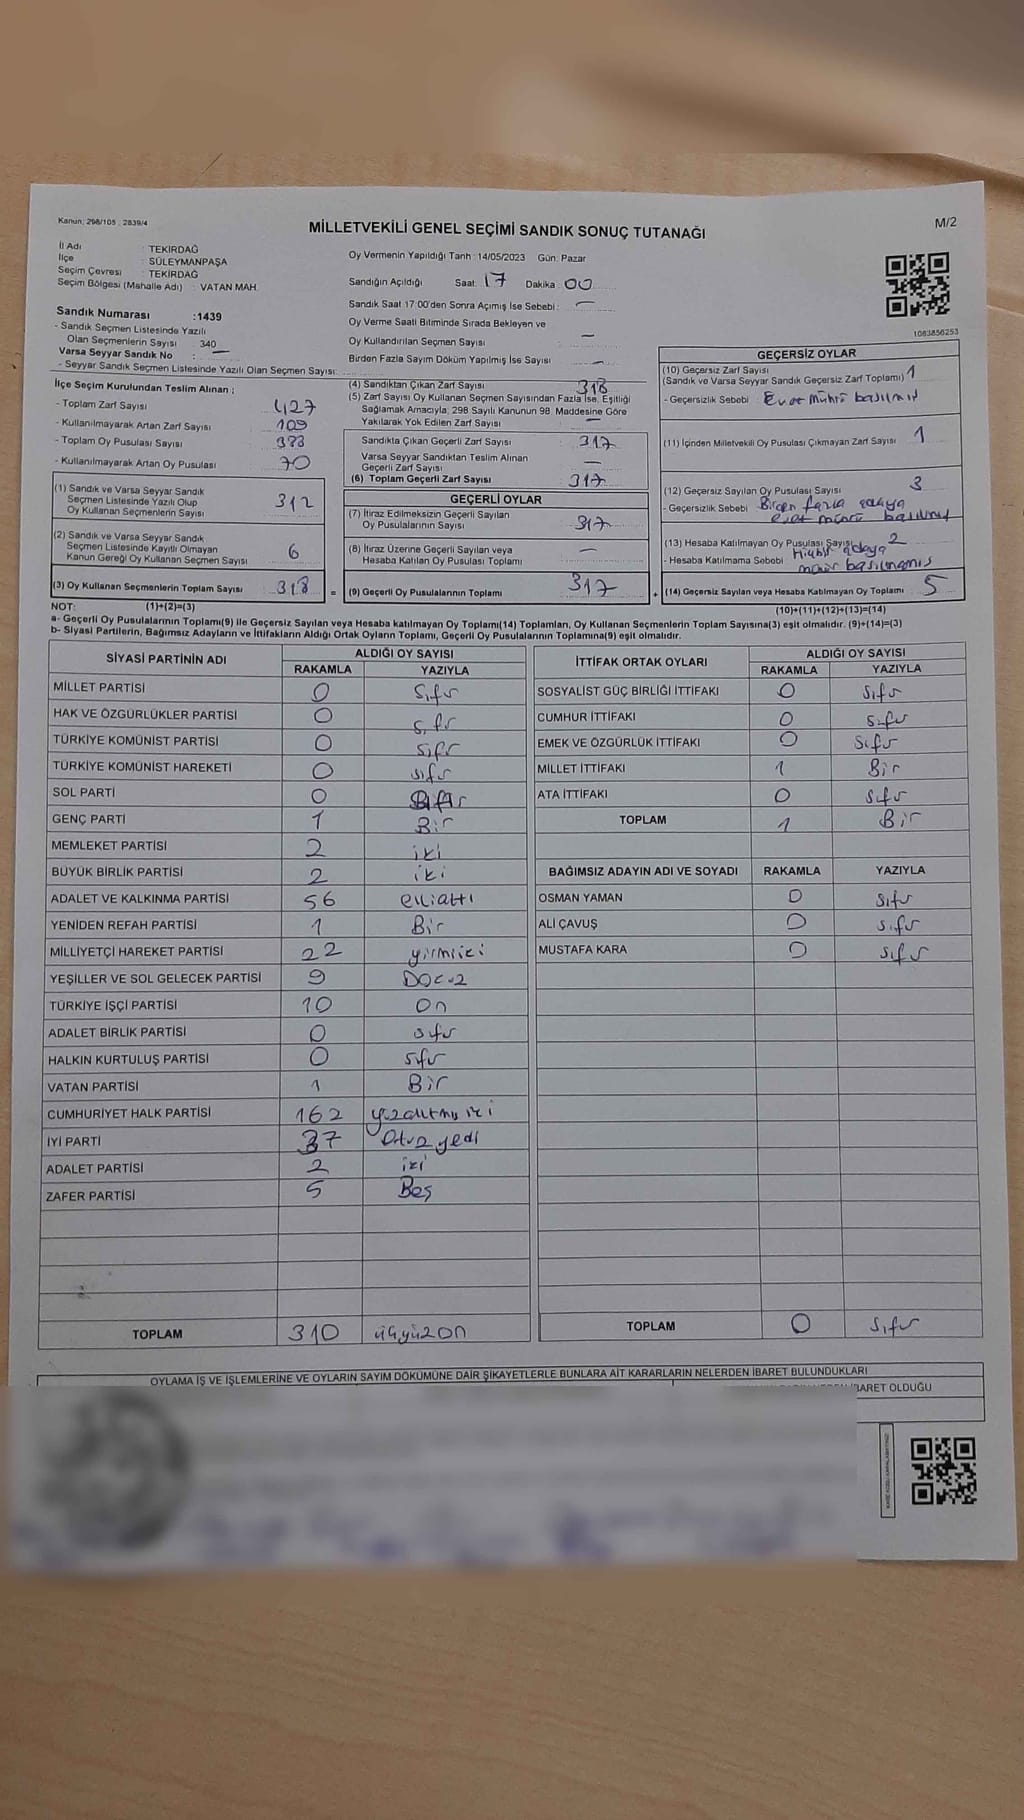 Kanun: 298/105 , 2839/4
MİLLETVEKİLİ GENEL SEÇİMİ SANDIK SONUÇ TUTANAĞI
M/2
İl Adı : TEKİRDAĞ
İlçe : SÜLEYMANPAŞA
Seçim Çevresi : TEKİRDAĞ
Seçim Bölgesi (Mahalle Adı) : VATAN MAH.
Oy Vermenin Yapıldığı Tarih :14/05/2023 Gün: Pazar
Sandığın Açıldığı Saat: 17 Dakika : 00
Sandık Saat 17:00'den Sonra Açımış İse Sebebi : —
Oy Verme Saati Bitiminde Sırada Bekleyen ve
Oy Kullandırılan Seçmen Sayısı —
Birden Fazla Sayım Döküm Yapılmış İse Sayısı —
1083856253
Sandık Numarası :1439
- Sandık Seçmen Listesinde Yazılı
Olan Seçmenlerin Sayısı 340
Varsa Seyyar Sandık No : —
- Seyyar Sandık Seçmen Listesinde Yazılı Olan Seçmen Sayısı:
İlçe Seçim Kurulundan Teslim Alınan ;
- Toplam Zarf Sayısı : 427
- Kullanılmayarak Artan Zarf Sayısı : 109
- Toplam Oy Pusulası Sayısı : 388
- Kullanılmayarak Artan Oy Pusulası : 70
(1) Sandık ve Varsa Seyyar Sandık
Seçmen Listesinde Yazılı Olup
Oy Kullanan Seçmenlerin Sayısı : 312
(2) Sandık ve Varsa Seyyar Sandık
Seçmen Listesinde Kayıtlı Olmayan
Kanun Gereği Oy Kullanan Seçmen Sayısı : 6
(3) Oy Kullanan Seçmenlerin Toplam Sayısı : 318 =
(4) Sandıktan Çıkan Zarf Sayısı : 318
(5) Zarf Sayısı Oy Kullanan Seçmen Sayısından Fazla İse, Eşitliği
Sağlamak Amacıyla, 298 Sayılı Kanunun 98. Maddesine Göre
Yakılarak Yok Edilen Zarf Sayısı : —
Sandıkta Çıkan Geçerli Zarf Sayısı : 317
Varsa Seyyar Sandıktan Teslim Alınan
Geçerli Zarf Sayısı : —
(6) Toplam Geçerli Zarf Sayısı : 317
GEÇERLİ OYLAR
(7) İtiraz Edilmeksizin Geçerli Sayılan
Oy Pusulalarının Sayısı : 317
(8) İtiraz Üzerine Geçerli Sayılan veya
Hesaba Katılan Oy Pusulası Toplamı : —
(9) Geçerli Oy Pusulalarının Toplamı : 317 +
GEÇERSİZ OYLAR
(10) Geçersiz Zarf Sayısı
(Sandık ve Varsa Seyyar Sandık Geçersiz Zarf Toplamı) : 1
- Geçersizlik Sebebi : Evet mührü basılmış
(11) İçinden Milletvekili Oy Pusulası Çıkmayan Zarf Sayısı : 1
(12) Geçersiz Sayılan Oy Pusulası Sayısı : 3
- Geçersizlik Sebebi : Birden fazla adaya
evet mührü basılmış
(13) Hesaba Katılmayan Oy Pusulası Sayısı : 2
- Hesaba Katılmama Sebebi : Hiçbir adaya
mühür basılmamış
(14) Geçersiz Sayılan veya Hesaba Katılmayan Oy Toplamı : 5
NOT: (1)+(2)=(3)
(10)+(11)+(12)+(13)=(14)
a- Geçerli Oy Pusulalarının Toplamı(9) ile Geçersiz Sayılan veya Hesaba katılmayan Oy Toplamı(14) Toplamları, Oy Kullanan Seçmenlerin Toplam Sayısına(3) eşit olmalıdır. (9)+(14)=(3)
b- Siyasi Partilerin, Bağımsız Adayların ve İttifakların Aldığı Ortak Oyların Toplamı, Geçerli Oy Pusulalarının Toplamına(9) eşit olmalıdır.
SİYASİ PARTİNİN ADI ALDIĞI OY SAYISI
RAKAMLA YAZIYLA
MİLLET PARTİSİ 0 sıfır
HAK VE ÖZGÜRLÜKLER PARTİSİ 0 sıfır
TÜRKİYE KOMÜNİST PARTİSİ 0 sıfır
TÜRKİYE KOMÜNİST HAREKETİ 0 sıfır
SOL PARTİ 0
GENÇ PARTİ 1 Bir
MEMLEKET PARTİSİ 2 iki
BÜYÜK BİRLİK PARTİSİ 2 iki
ADALET VE KALKINMA PARTİSİ 56 elliAltı
YENİDEN REFAH PARTİSİ 1 Bir
MİLLİYETÇİ HAREKET PARTİSİ 22 yirmiiki
YEŞİLLER VE SOL GELECEK PARTİSİ 9 Dokuz
TÜRKİYE İŞÇİ PARTİSİ 10 on
ADALET BİRLİK PARTİSİ 0 sıfır
HALKIN KURTULUŞ PARTİSİ 0 sıfır
VATAN PARTİSİ 1 Bir
CUMHURİYET HALK PARTİSİ 162 yüzaltmış iki
İYİ PARTİ 37 Otuz yedi
ADALET PARTİSİ 2 iki
ZAFER PARTİSİ 5 Beş
TOPLAM 310 üçyüzon
İTTİFAK ORTAK OYLARI ALDIĞI OY SAYISI
RAKAMLA YAZIYLA
SOSYALİST GÜÇ BİRLİĞİ İTTİFAKI 0 sıfır
CUMHUR İTTİFAKI 0 sıfır
EMEK VE ÖZGÜRLÜK İTTİFAKI 0 sıfır
MİLLET İTTİFAKI 1 Bir
ATA İTTİFAKI 0 sıfır
TOPLAM 1 Bir
BAĞIMSIZ ADAYIN ADI VE SOYADI RAKAMLA YAZIYLA
OSMAN YAMAN 0 sıfır
ALİ ÇAVUŞ 0 sıfır
MUSTAFA KARA 0 sıfır
TOPLAM 0 sıfır
OYLAMA İŞ VE İŞLEMLERİNE VE OYLARIN SAYIM DÖKÜMÜNE DAİR ŞİKAYETLERLE BUNLARA AİT KARARLARIN NELERDEN İBARET BULUNDUKLARI
İBARET OLDUĞU